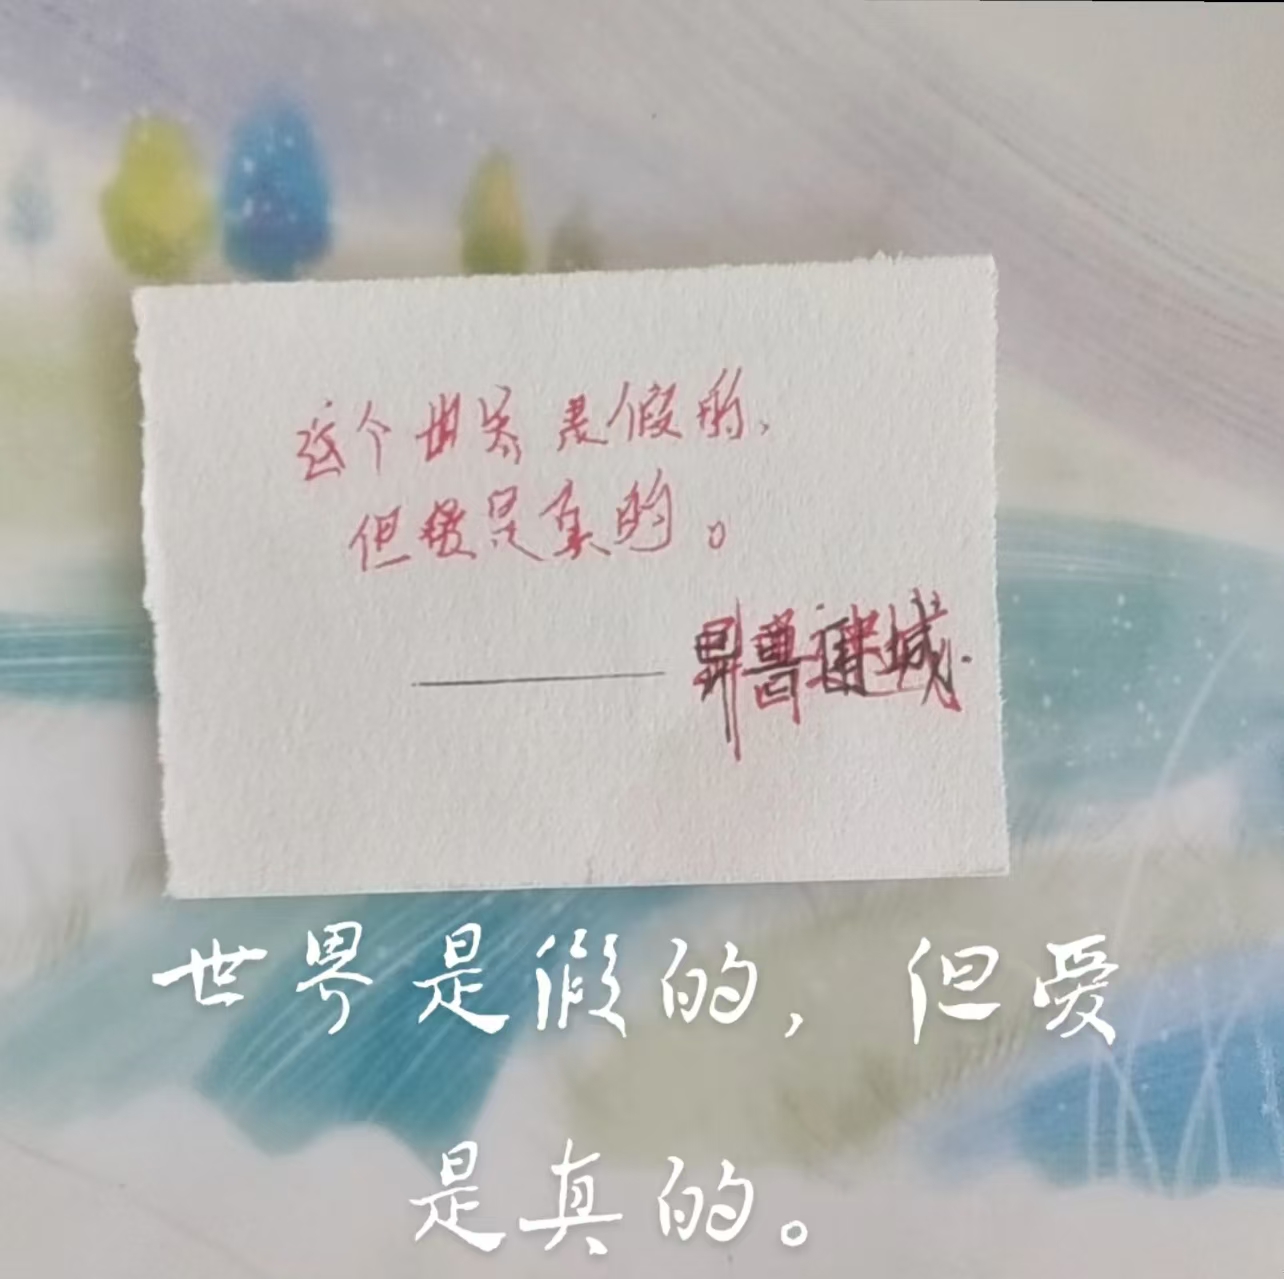 这个世界是假的，
但爱是真的。
——异兽迷城.
世界是假的，但爱
是真的。